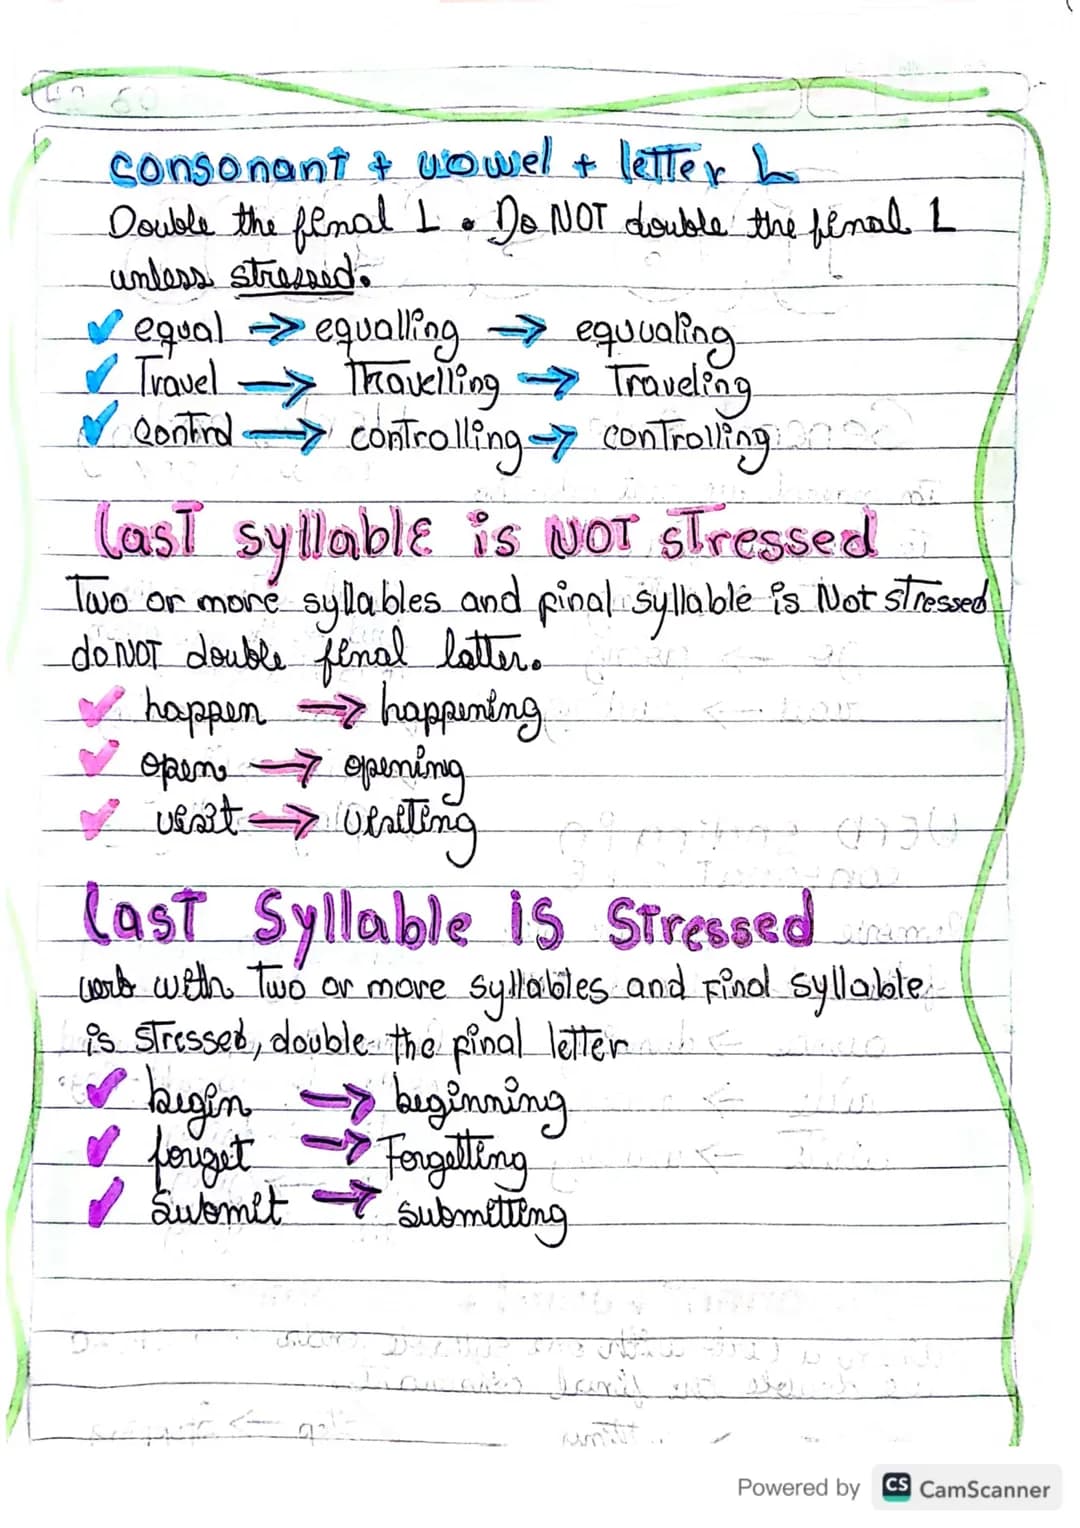 consonant + vowel + letter L
Double the final L . Do NOT double the final L
unless stressed.
✓ equal → equalling → equualing
✓ Travel → Travelling → Traveling
✓ control → controlling → controlling
Last syllable is NOT stressed
Two or more syllables and final syllable is Not stressed
do NOT double final latter.
✓ happen → happening
✓ open → opening
✓ visit → visiting
Last Syllable is Stressed
verb with Two or more syllables and Final syllable
is stressed, double the final letter
✓ begin → beginning
✓ forget → Forgetting
✓ Submit → submitting
Powered by CS CamScanner